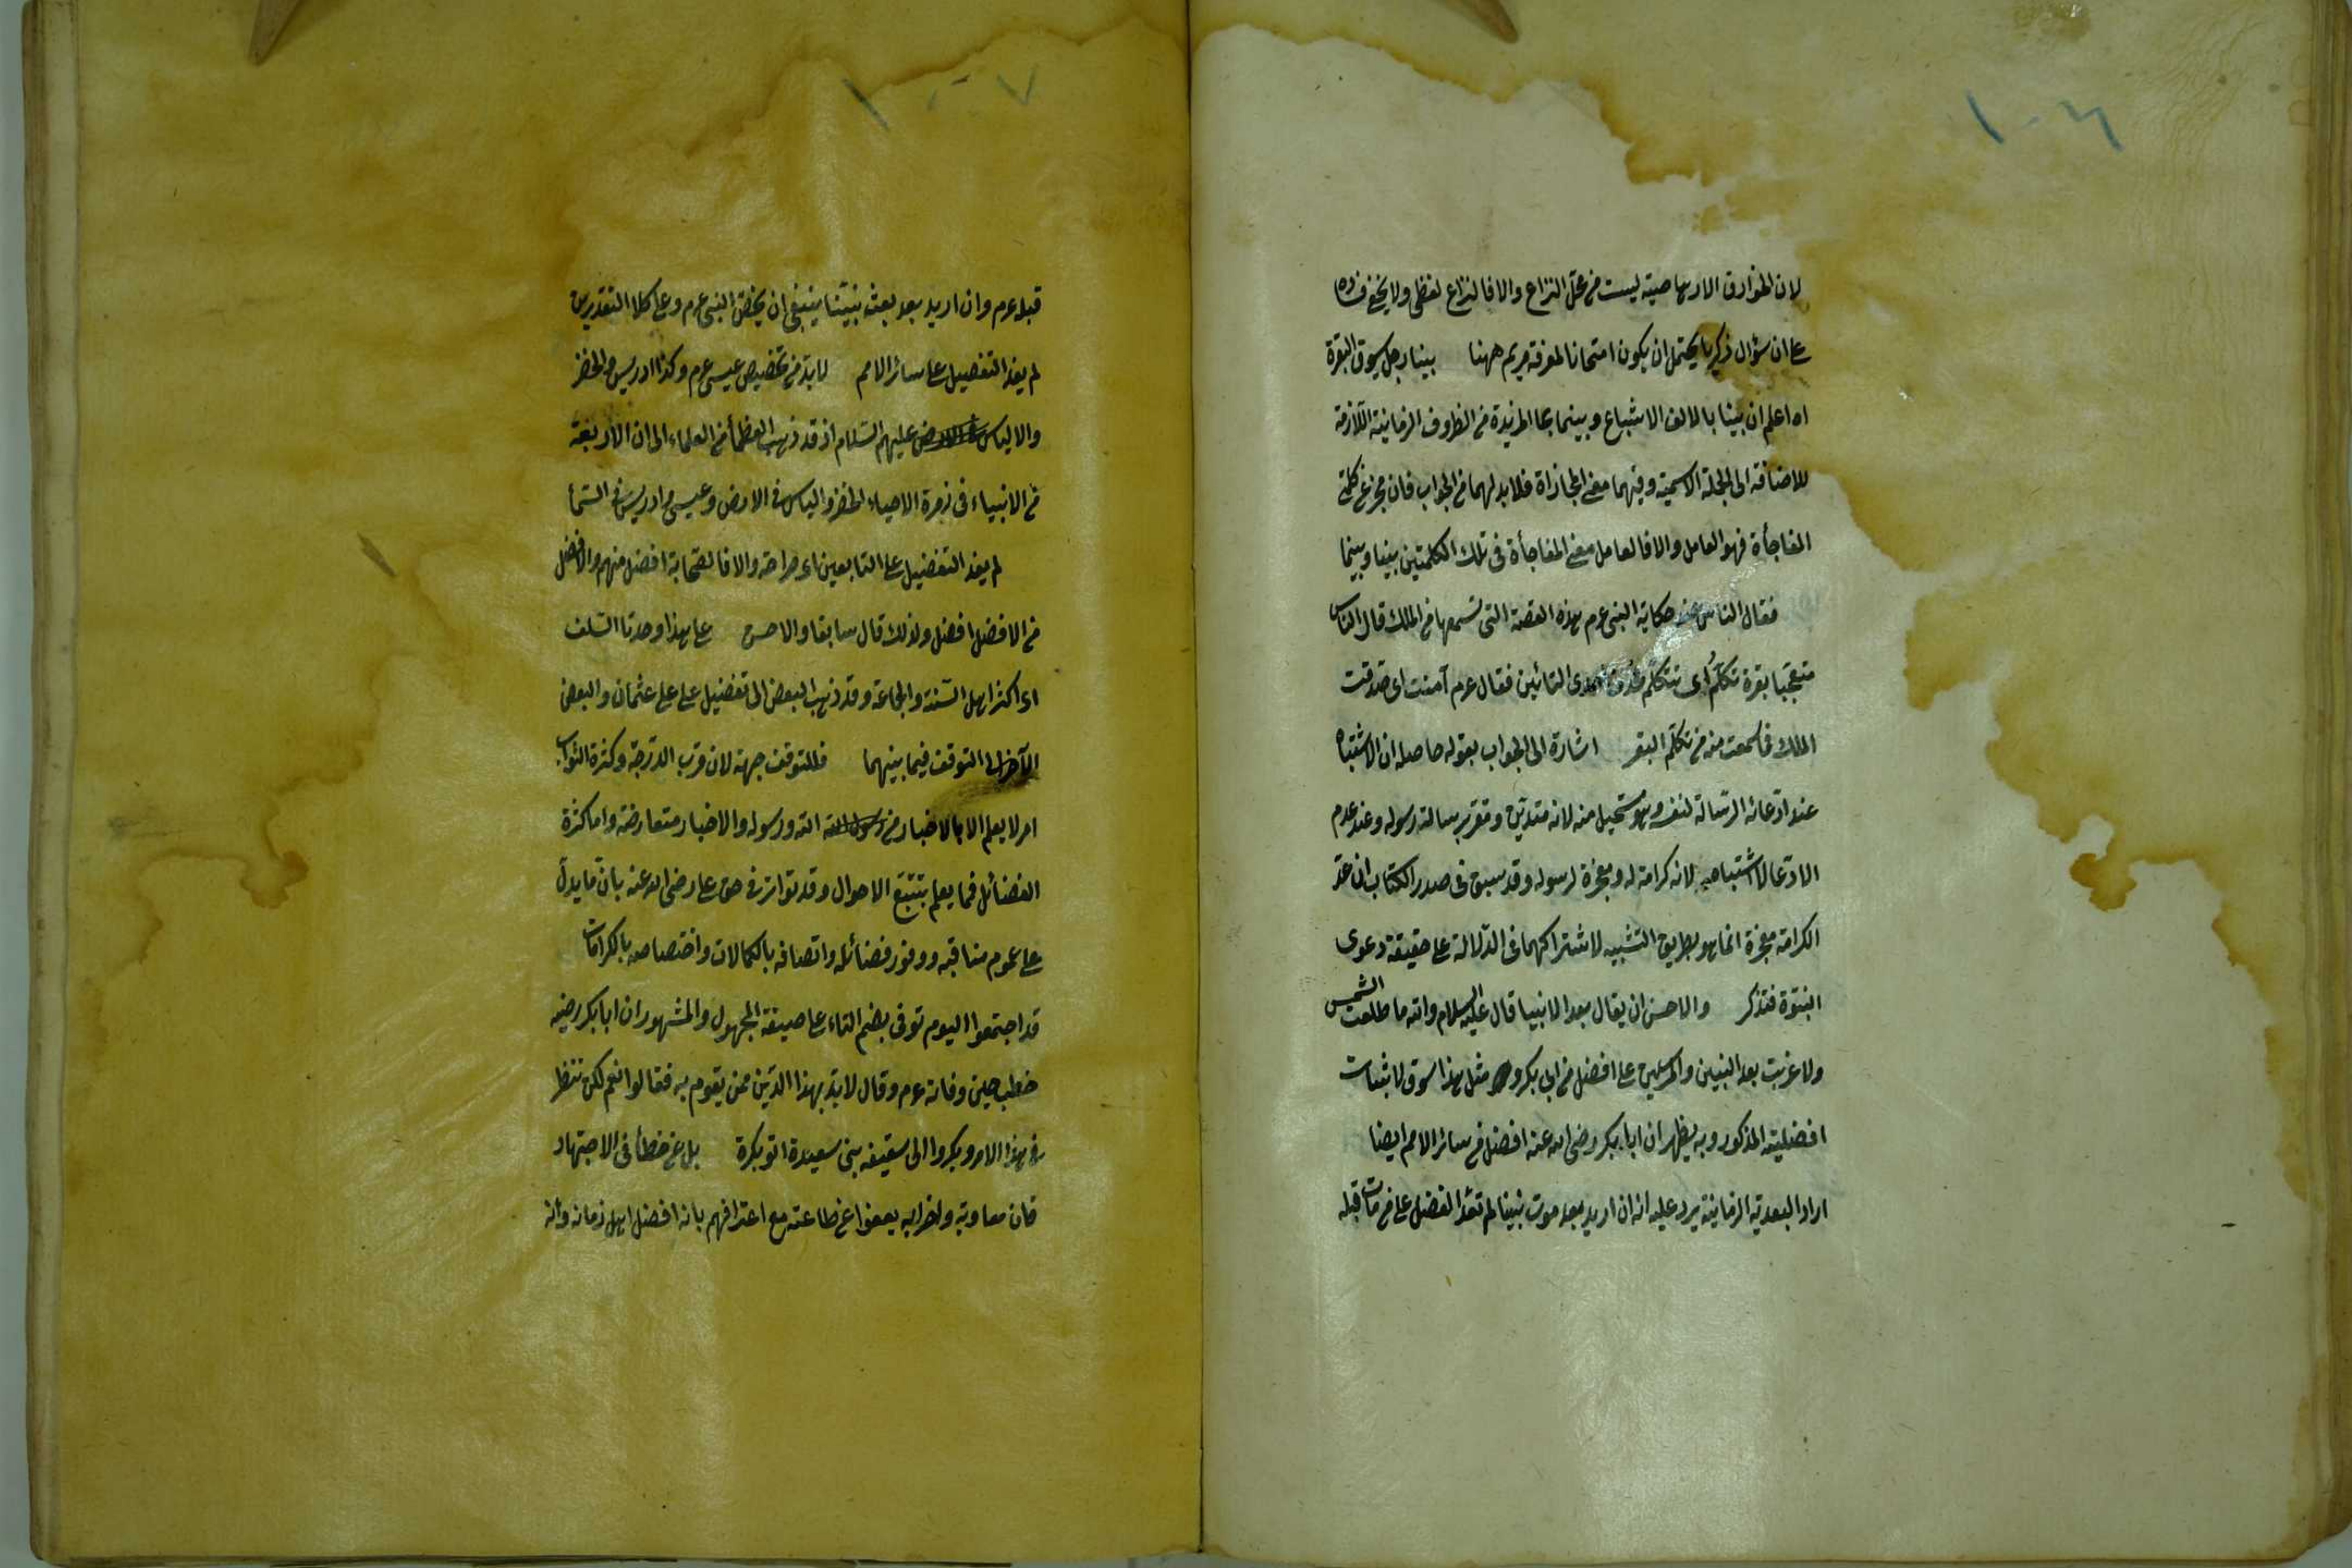 ١٠٦
لان الخوارق الارهاصية ليست من محل النزاع والا فالنزاع لفظى ولا يخفى فساده
على ان سؤال زكريا يحتمل ان يكون امتحانا لمعرفة مريم ههنا بينا رجل يسوق البقرة
اه اعلم ان بينا بالالف الاشباع وبينما بما المزيدة من الظروف الزمانية اللازمة
للاضافة الى الجملة الاسمية وفيهما معنى المجازاة فلا بد لهما من الجواب فان مجرد عن كلمتى
المفاجأة فهو العامل والا فالعامل معنى المفاجأة فى تلك الكلمتين بينا وبينما
فقال الناس عند حكاية النبى عوم بهذه القصة التى تسمعها من الملك قال الناس
متعجبا بقرة تكلم اى تتكلم حذف احدى التائين فقال عوم آمنت اى صدقت
الملك فما سمعت منه من تكلم البقر اشارة الى الجواب بقوله حاصله ان الاشتباه
عند ادعائه الرسالة لنفسه وهو مستحيل منه لانه متدين ومقر برسالة رسوله وعند عدم
الادعا لا اشتباه لانه كرامة له ومعجزة لرسوله وقد سبق فى صدر الكتاب ان عد
الكرامة معجزة انما هو بطريق التشبيه لاشتراكهما فى الدلالة على حقيقة دعوى
النبوة فتذكر والاحسن ان يقال بعد الانبيا قال عليه السلام والله ما طلعت الشمس
ولا غربت بعد النبيين والمرسلين على افضل من ابى بكر و مثل هذا سوق لاثبات
افضلية المذكور وبه يظهر ان ابا بكر رضى الله عنه افضل من سائر الامم ايضا
اراد البعدية الزمانية يرد عليه انه ان اريد بعد موت نبينا لم تفد الفضل على من مات قبله
١٠٧
قبله عوم وان اريد بعد بعث نبينا ينبغى ان يخص النبى عوم وعلى كلا التقديرين
لم يفد التفضيل على سائر الامم لا بد من تخصيص عيسى عوم وكذا ادريس والخضر
والالياس عليهم السلام اذ قد ذهب العظمأ من العلماء الى ان الاربعة
من الانبياء فى زمرة الاحياء الخضر والياس فى الارض وعيسى وادريس فى السمأ
لم يفد التفضيل على التابعين اى صراحة والا فالصحابة افضل منهم والافضل
من الافضل افضل ولذلك قال سابقا والاحسن على هذا وجدنا السلف
اى اكثر اهل السنة والجماعة وقد ذهب البعض الى تفضيل على على عثمان والبعض
الآخر الى التوقف فيما بينهما فللتوقف جهة لان قرب الدرجة وكثرة الثواب
امر لا يعلم الا بالاخبار من الله ورسوله والاخبار متعارضة واما كثرة
الفضائل فمما يعلم بتتبع الاحوال وقد تواتر فى حق على رضى الله عنه بان ما يدل
على عموم مناقبه ووفور فضائله واتصافه بالكمالات واختصاصه بالكرامات
قد اجتمعوا اليوم توفى بضم التاء على صيغة المجهول والمشهور ان ابا بكر رضيه
خطب حين وفاته عوم وقال لا بد بهذا الدين ممن يقوم به فقالوا نعم لكن ننتظر
فى هذا الامر وبكروا الى سقيفه بنى سعيدة اتو بكرة بل عن خطأ فى الاجتهاد
فان معاوية واحزابه بعفوا عن طاعته مع اعترافهم بانه افضل اهل زمانه وانه